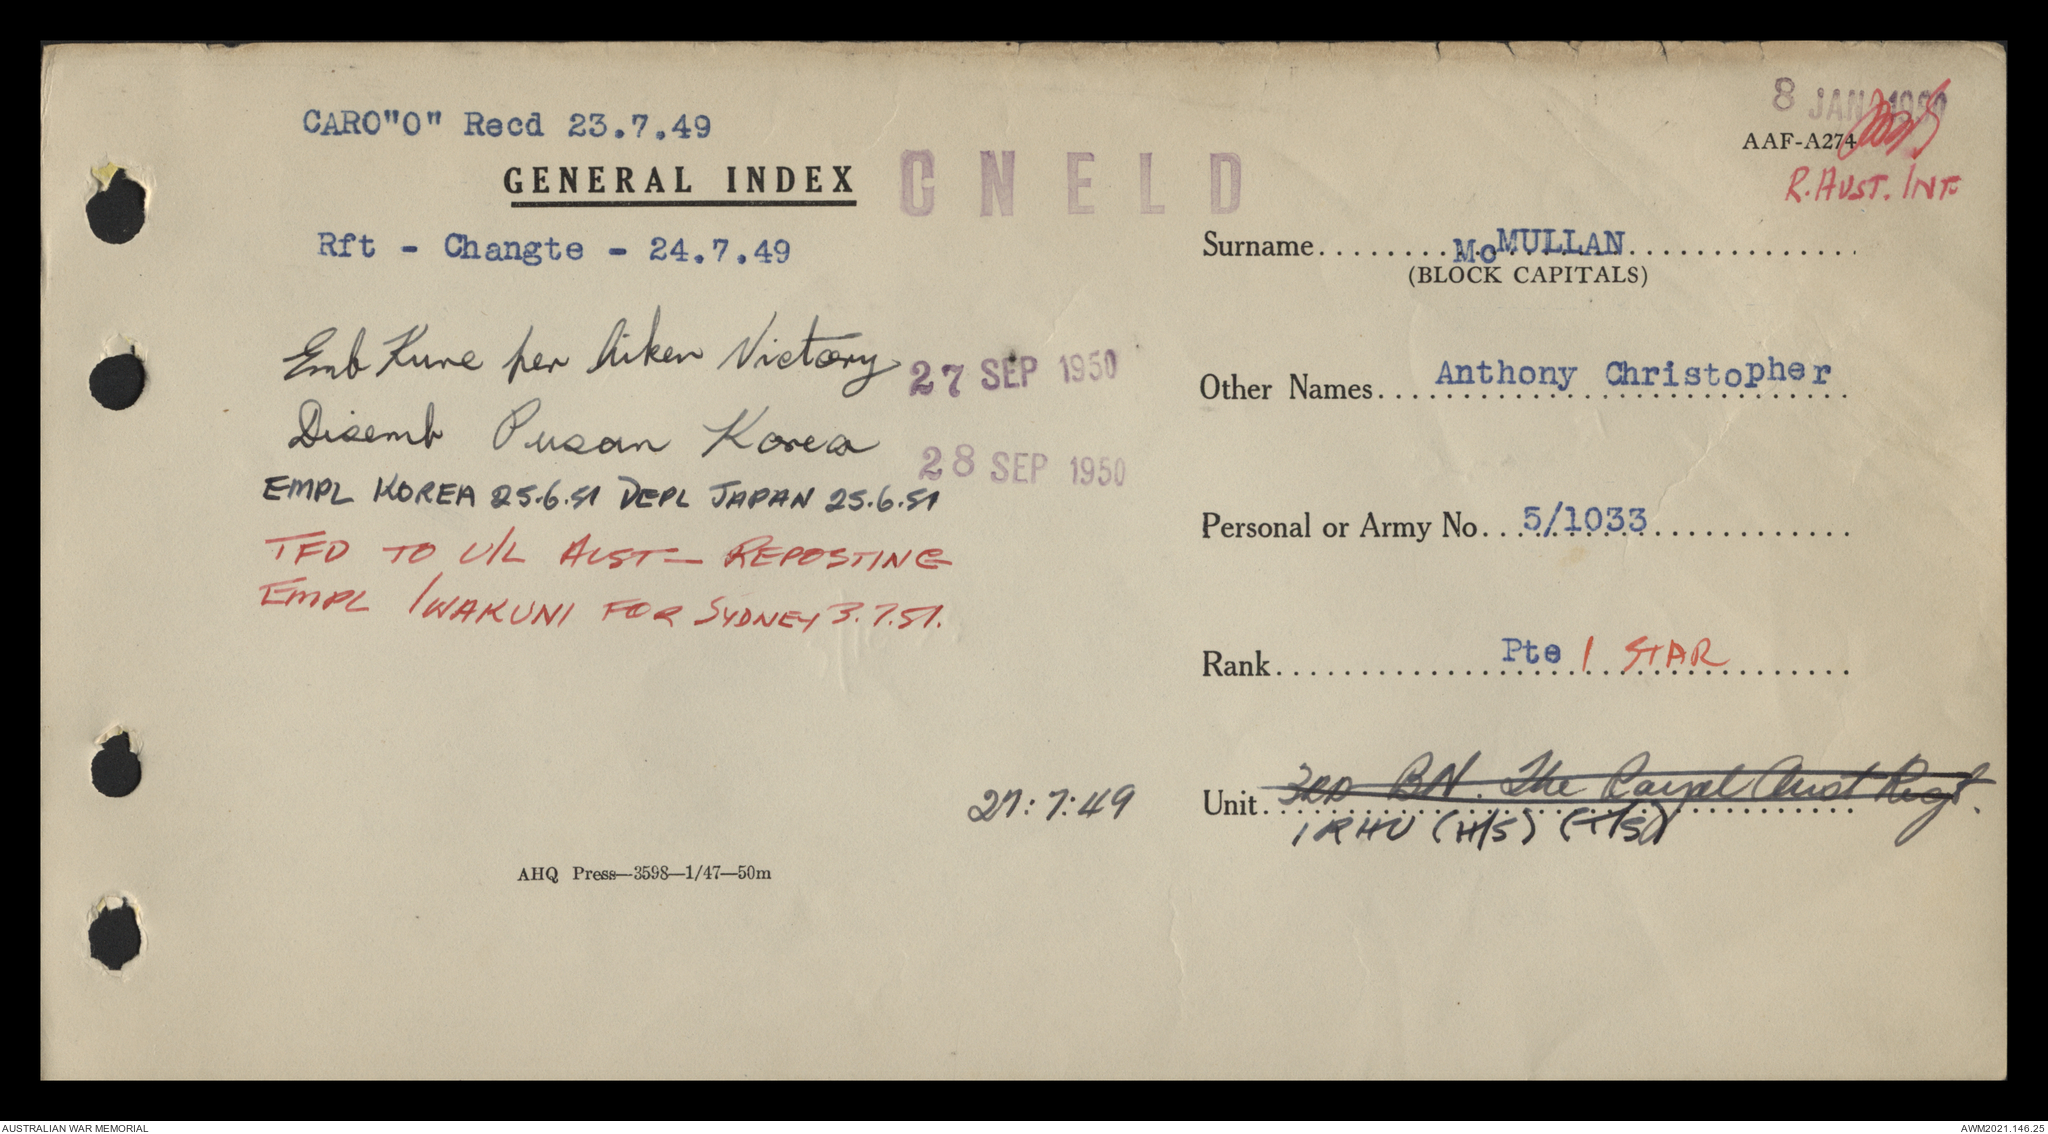 CARO"O" Recd 23.7.49
GENERAL INDEX
CNELD
Rft - Changte - 24.7.49
Emb Kure per Aiken Victory 27 SEP 1950
Disemb Pusan Korea 28 SEP 1950
EMPL KOREA 25.6.51 DEPL JAPAN 25.6.51
TFD TO U/L AUST - REPOSTING
EMPL IWAKUNI FOR SYDNEY 3.7.51.
27:7:49
AHQ Press—3598—1/47—50m
8 JAN 1950
AAF-A274
R. AUST. INF
Surname McMULLAN
(BLOCK CAPITALS)
Other Names Anthony Christopher
Personal or Army No. 5/1033
Rank Pte 1 STAR
Unit 3RD BN. The Royal Aust Regt.
1 RHU (H/S) (T/S)
AUSTRALIAN WAR MEMORIAL
AWM2021.146.25